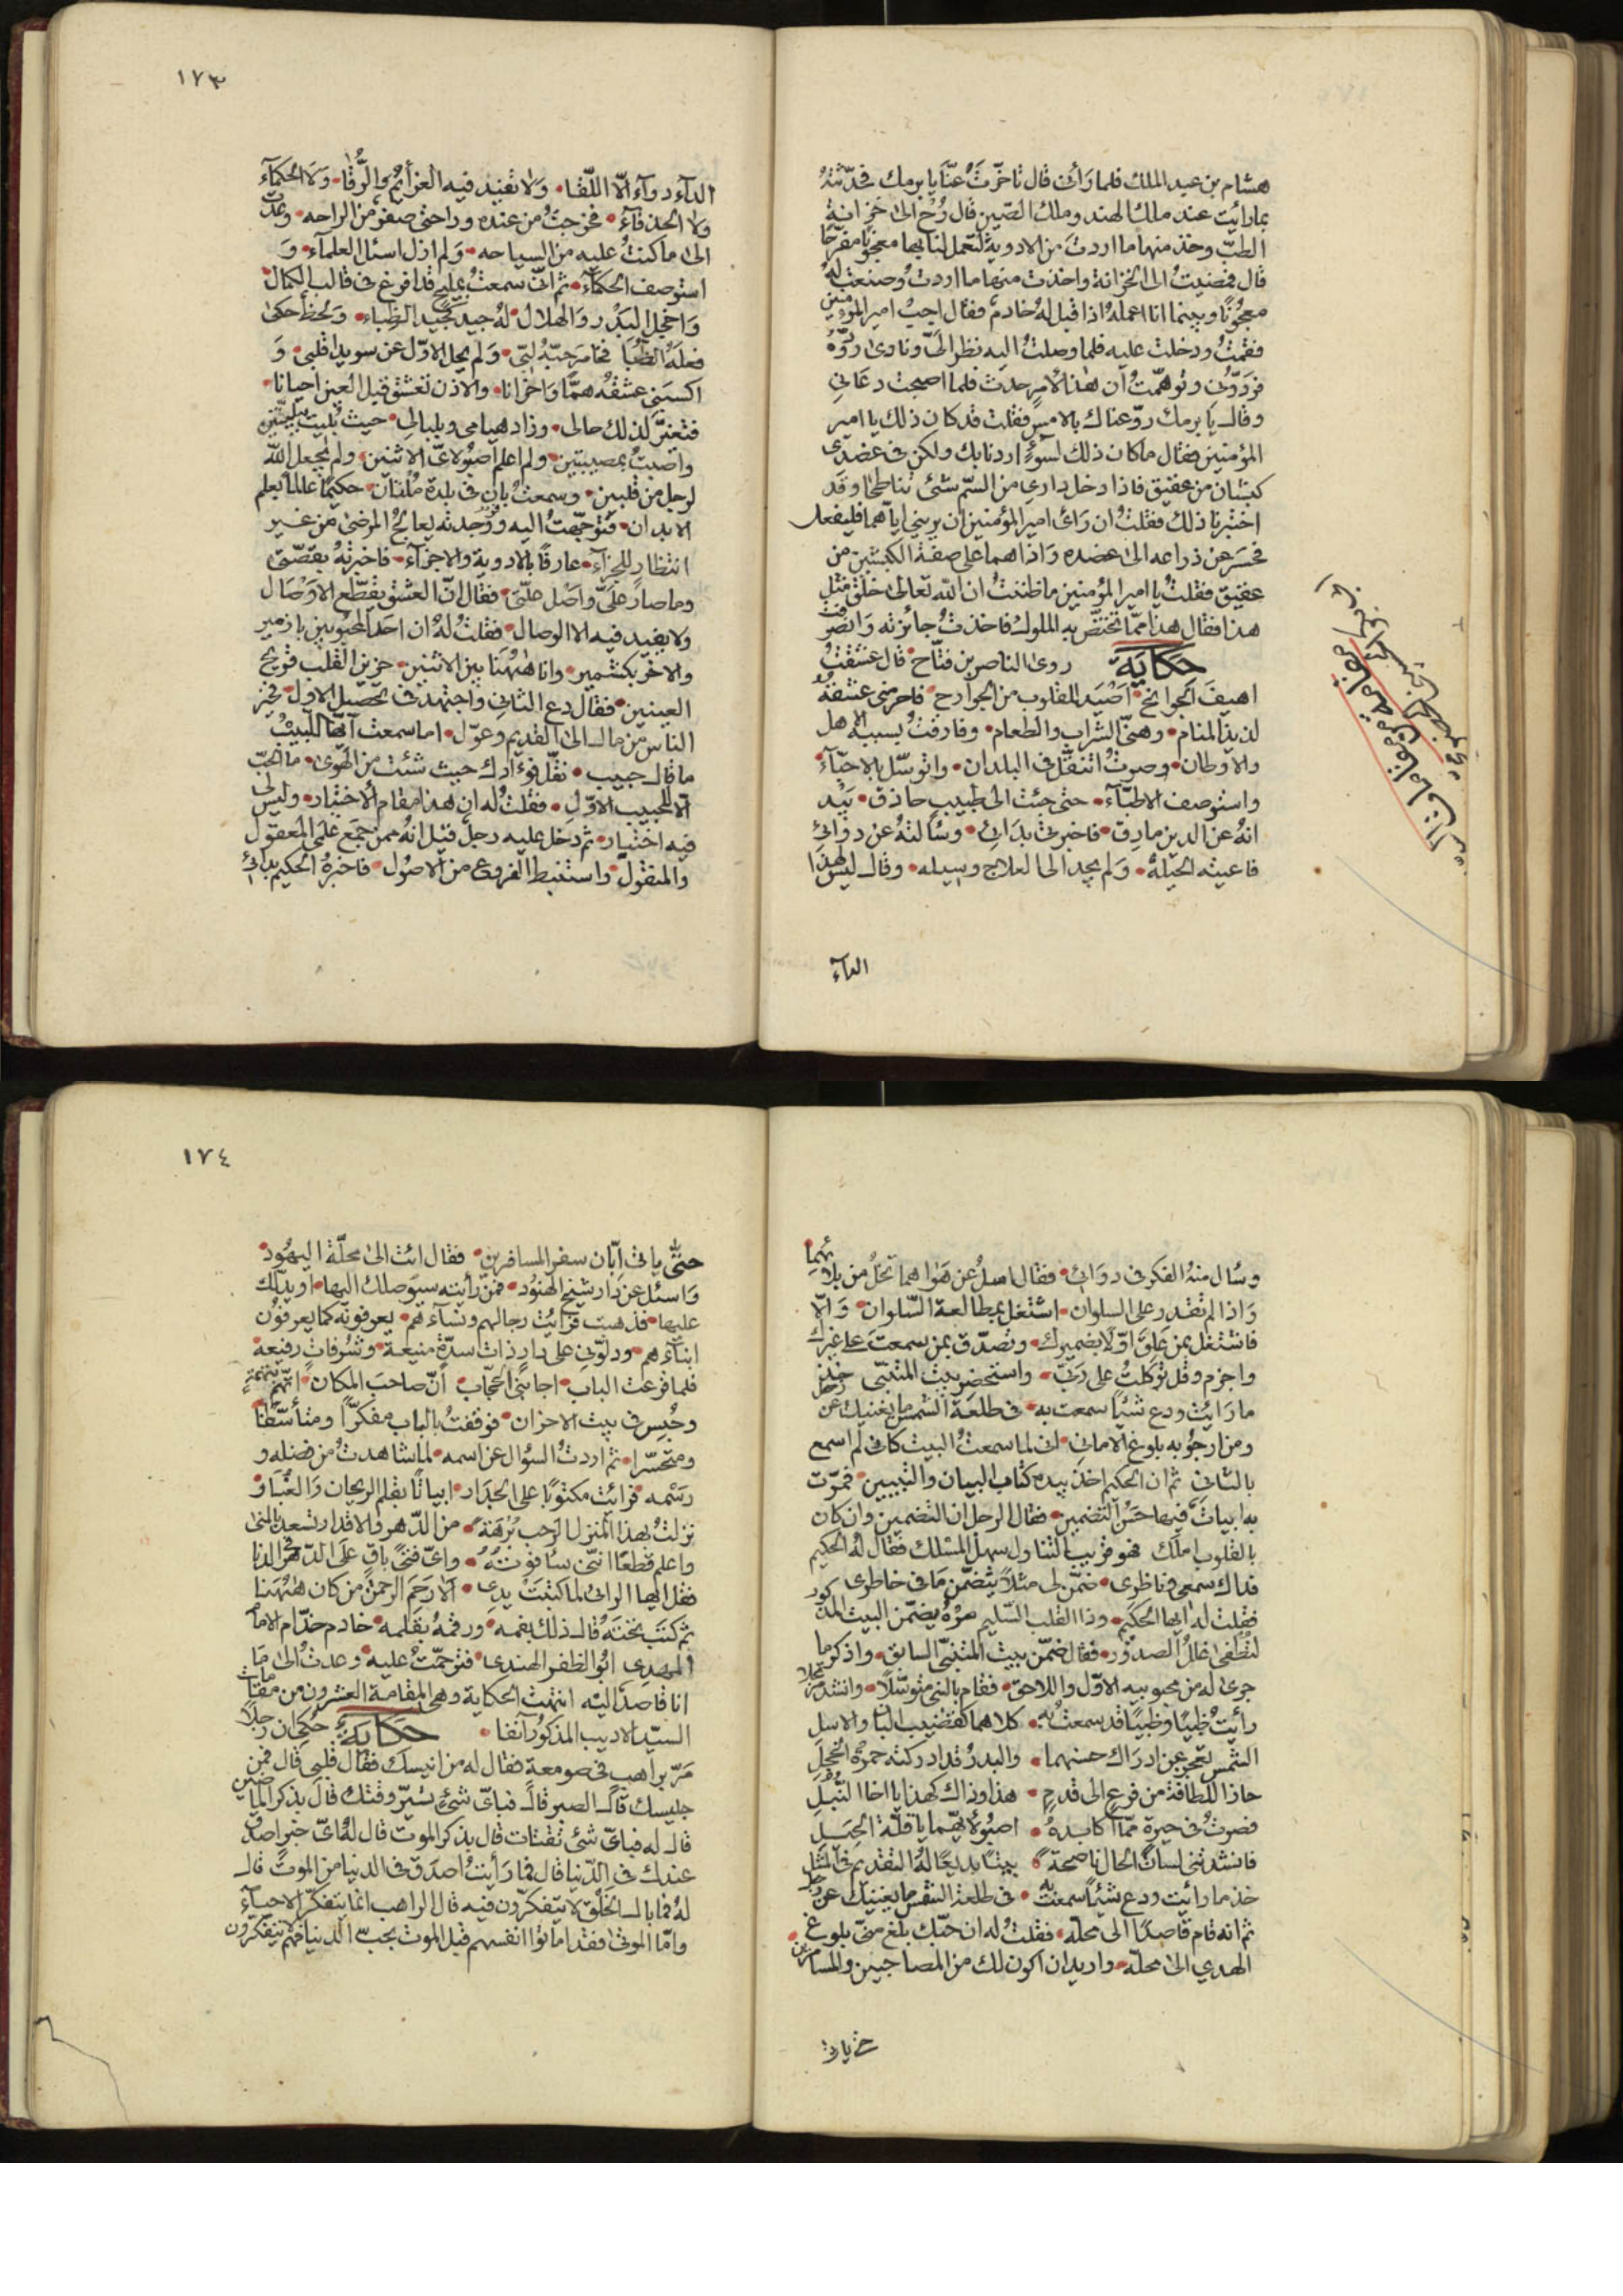 هشام بن عبد الملك فلما رأى قال تأخرت عنا يا برمك فحدثته
بما رأيت عند ملك الهند وملك الصين قال رح الى خزانة
الطب وخذ منها ما اردت من الادوية لتعمل لنا بها معجونا مفرحا
قال فمضيت الى الخزانة واخذت منها ما اردت وصنعت له
معجونًا وبينما انا اعمله اذا قبل له خادم فقال اجب امير المؤمنين
فقمت ودخلت عليه فلما وصلت اليه نظر الىّ ونادى ردّوه
فردّونى وتوهمّت ان هذا لامرٍ حدث فلما اصبحت دعانى
وقال يا برمك روّعناك بالامس فقلت قد كان ذلك يا امير
المؤمنين فقال ما كان ذلك لسوءٍ اردنا بك ولكن فى عضدى
كبشان من عقيق فاذا دخل دارى من السّم شئ تناطحا وقد
اختبرنا ذلك فقلت ان رائ امير المؤمنين ان يرينى اياهما فليفعل
فحسر عن ذراعه الى عضده واذا هما على صفة الكبشين من
عقيق فقلت يا امير المؤمنين ما ظننت ان الله تعالى خلق مثل
هذا فقال هذا ممّا تختصّ به الملوك فاخذت جائزته وانصرفت
حكاية روى الناصر بن فتّاح قال عشقت
اهيف الجوانح اصيد للقلوب من الجوارح فاحرمنى عشقه
لذيذ المنام وهنىّ الشراب والطعام وفارقت بسببه الاهل
والاوطان وصرت اتنقّل فى البلدان واتوسّل بالاحبّاء
واستوصف الاطبّاء حتى جئت الى طبيب حاذق بيد
انه عن الدين مارق فاخبرنى بدائى وسالته عن دوائى
فاعيته الحيلة ولم يجد الى العلاج وسيله وقال ليس لهذا
الداء
١٧٣
الداء دواء الّا اللّقا ولا تفيد فيه العزائم والرُّقا ولا الحكماء
ولا الحذقاء فخرجت من عنده وراحتى صفر من الراحه وعدت
الى ما كنت عليه من السياحه ولم ازل اسئل العلماء و
استوصف الحكماء ثم انّى سمعت بمليح قد افرغ فى قالب الكمال
واخجل البدر والهلال له جيد كجيد الظباء ولحظ حكى
فعله الظُّبا فخامر حبّه لبّى ولم يحل الاوّل عن سويدا قلبى و
اكسبنى عشقه همّا واحزانا والاذن تعشق قبل العين احيانا
فتغيّر لذلك حالى وزاد هيامى وبلبالى حيث بُليت ببليّتين
واصبت بمصيبتين ولم اعلم اصبو لاىّ الاثنين ولم يجعل الله
لرجل من قلبين وسمعت بانّ فى بلدة ملتان حكيمًا عالمًا بعلم
الابدان فتوجّهت اليه ووجدته يعالج المرضى من غير
انتظار للجزاء عارفًا بالادوية والاجزاء فاخبرته بقصّتى
وما صار علىّ واصل علّتى فقال انّ العشق يقطّع الاوصال
ولا يفيد فيه الا الوصال فقلت له ان احد المحبوبين بازمير
والاخر بكشمير وانا ههنا بين الاثنين حزين القلب قريح
العينين فقال دع الثانى واجتهد فى تحصيل الاول فخير
الناس من مال الى القديم وعوّل اما سمعت ايها اللبيب
ما قال حبيب نقّل فؤادك حيث شئت من الهوى ما الحبّ
الّا للحبيب الاوّل فقلت له ان هذا مقام الاختبار وليس لى
فيه اختيار ثم دخل عليه رجل قيل انه ممن جمع علمى المعقول
والمنقول واستنبط الفروع من الاصول فاخبره الحكيم بدائى
وسال منه الفكر فى دوائى فقال اسل عن هواهما تخل من بلائهما
واذا لم تقدر على السلوان اشتغل بمطالعة السّلوان والّا
فاشتغل بمن علق اوّلا بضميرك وتصدّق بمن سمعت على غيرك
واجزم وقل توكلت على ربّى واستحضر بيت المتنبّى خذ
ما رايت ودع شيئا سمعت به فى طلعة الشمس ما يغنيك عن زحل
ومن ارجو به بلوغ الامانى انى لما سمعت البيت كانى لم اسمع
بالثانى ثم ان الحكيم اخذ بيده كتاب البيان والتبيين فمرّت
به ابيات فيها حسن التضمين فقال الرجل ان التضمين وان كان
بالقلوب املك فهو قريب التناول سهل المسلك فقال له الحكيم
فداك سمعى وناظرى ضمّن لى مثلًا يتضمّن ما فى خاطرى
فقلت له ايها الحكيم وذا القلب السّليم مره يضمّن البيت المذكور
لتطفى غلل الصدور فقال ضمّن بيت المتنبّى السابق واذكر ما
جرى له من محبوبيه الاوّل واللاحق فقام بالنبى متوسّلًا وانشد مرتجلا
رأيت ظبيًا وظبيًا قد سمعت به كلاهما كقضيب البان والاسل
الشمس تعجز عن ادراك حسنهما والبدر قد ادركته حمرة الخجل
حازا للطافة من فرع الى قدم هذا وذاك كهذا يا اخا النُّبل
فصرت فى حيرة ممّا اكابده اصبو لايّهما يا قلّة الحيل
فانشدتنى لسان الحال ناصحة بيتًا بديعًا له التقديم فى المثل
خذ ما رايت ودع شيئًا سمعت به فى طلعة الشمس ما يغنيك عن زحل
ثم انه قام قاصدًا الى محلّه فقلت له ان حبّك بلغ منّى بلوغ
الهدي الى محلّه واريد ان اكون لك من المصاحبين والمسامرين
حتى ياتى
١٧٤
حتّى ياتى ابّان سفر المسافرين فقال ائت الى محلّة اليهود
واسئل عن دار شيخ الهنود فمن رأيته سيوصلك اليها او يدلّك
عليها فذهبت فرايت رجالهم ونساءهم يعرفونه كما يعرفون
ابناءهم ودلّونى على دار ذات اسدّة منيعة وشرفات رفيعة
فلما قرعت الباب اجابنى الحجّاب انّ صاحب المكان اتّهم بتهمة
وحُبس فى بيت الاحزان فوقفت بالباب مفكّرًا ومتأسّفًا
ومتحسّرا ثم اردت السؤال عن اسمه لما شاهدت من فضله و
رسمه فرائت مكتوبًا على الجدار ابياتًا بقلم الريحان والغبار
نزلت بهذا المنزل الرحب بُرهة من الدّهر والاقدار تسعد بالمنى
واعلم قطعًا انّنى سافوته واىّ فتى باقٍ على الدّهر فى الدنا
فقل ايها الرائى لما كتبت يدى الا رحم الرحمن من كان ههنا
ثم كتب تحته قال ذلك بفمه ورقمه بقلمه خادم خدّام الامام
المهدى ابو الظفر الهندى فترحّمت عليه وعدت الى ما
انا قاصدًا اليه انتهت الحكاية وهى المقامة العشرون من مقامات
السيّد الاديب المذكور آنفا حكاية حُكى ان رجلًا
مرّ براهب فى صومعة فقال له من انيسك فقال قلبى قال فمن
جليسك قال الصبر قال فباىّ شئ تسيّر وقتك قال بذكر الماضين
قال له فباىّ شئ تقتات قال بذكر الموت قال له اىّ خبر اصدق
عندك فى الدّنيا قال فما رايت اصدق فى الدنيا من الموت قال
له فما بال الخلق لا يتفكّرون فيه قال الراهب انما يتفكّر الاحياء
وامّا الموتى فقد اماتوا انفسهم قبل الموت بحبّ الدنيا فهم لا يتفكّرون